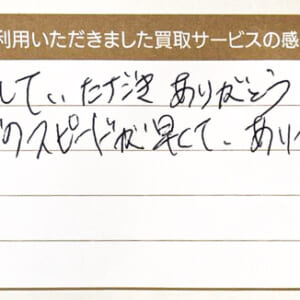 利用いただきました買取サービスの感
していただき ありがとう
のスピードが早くて、あり